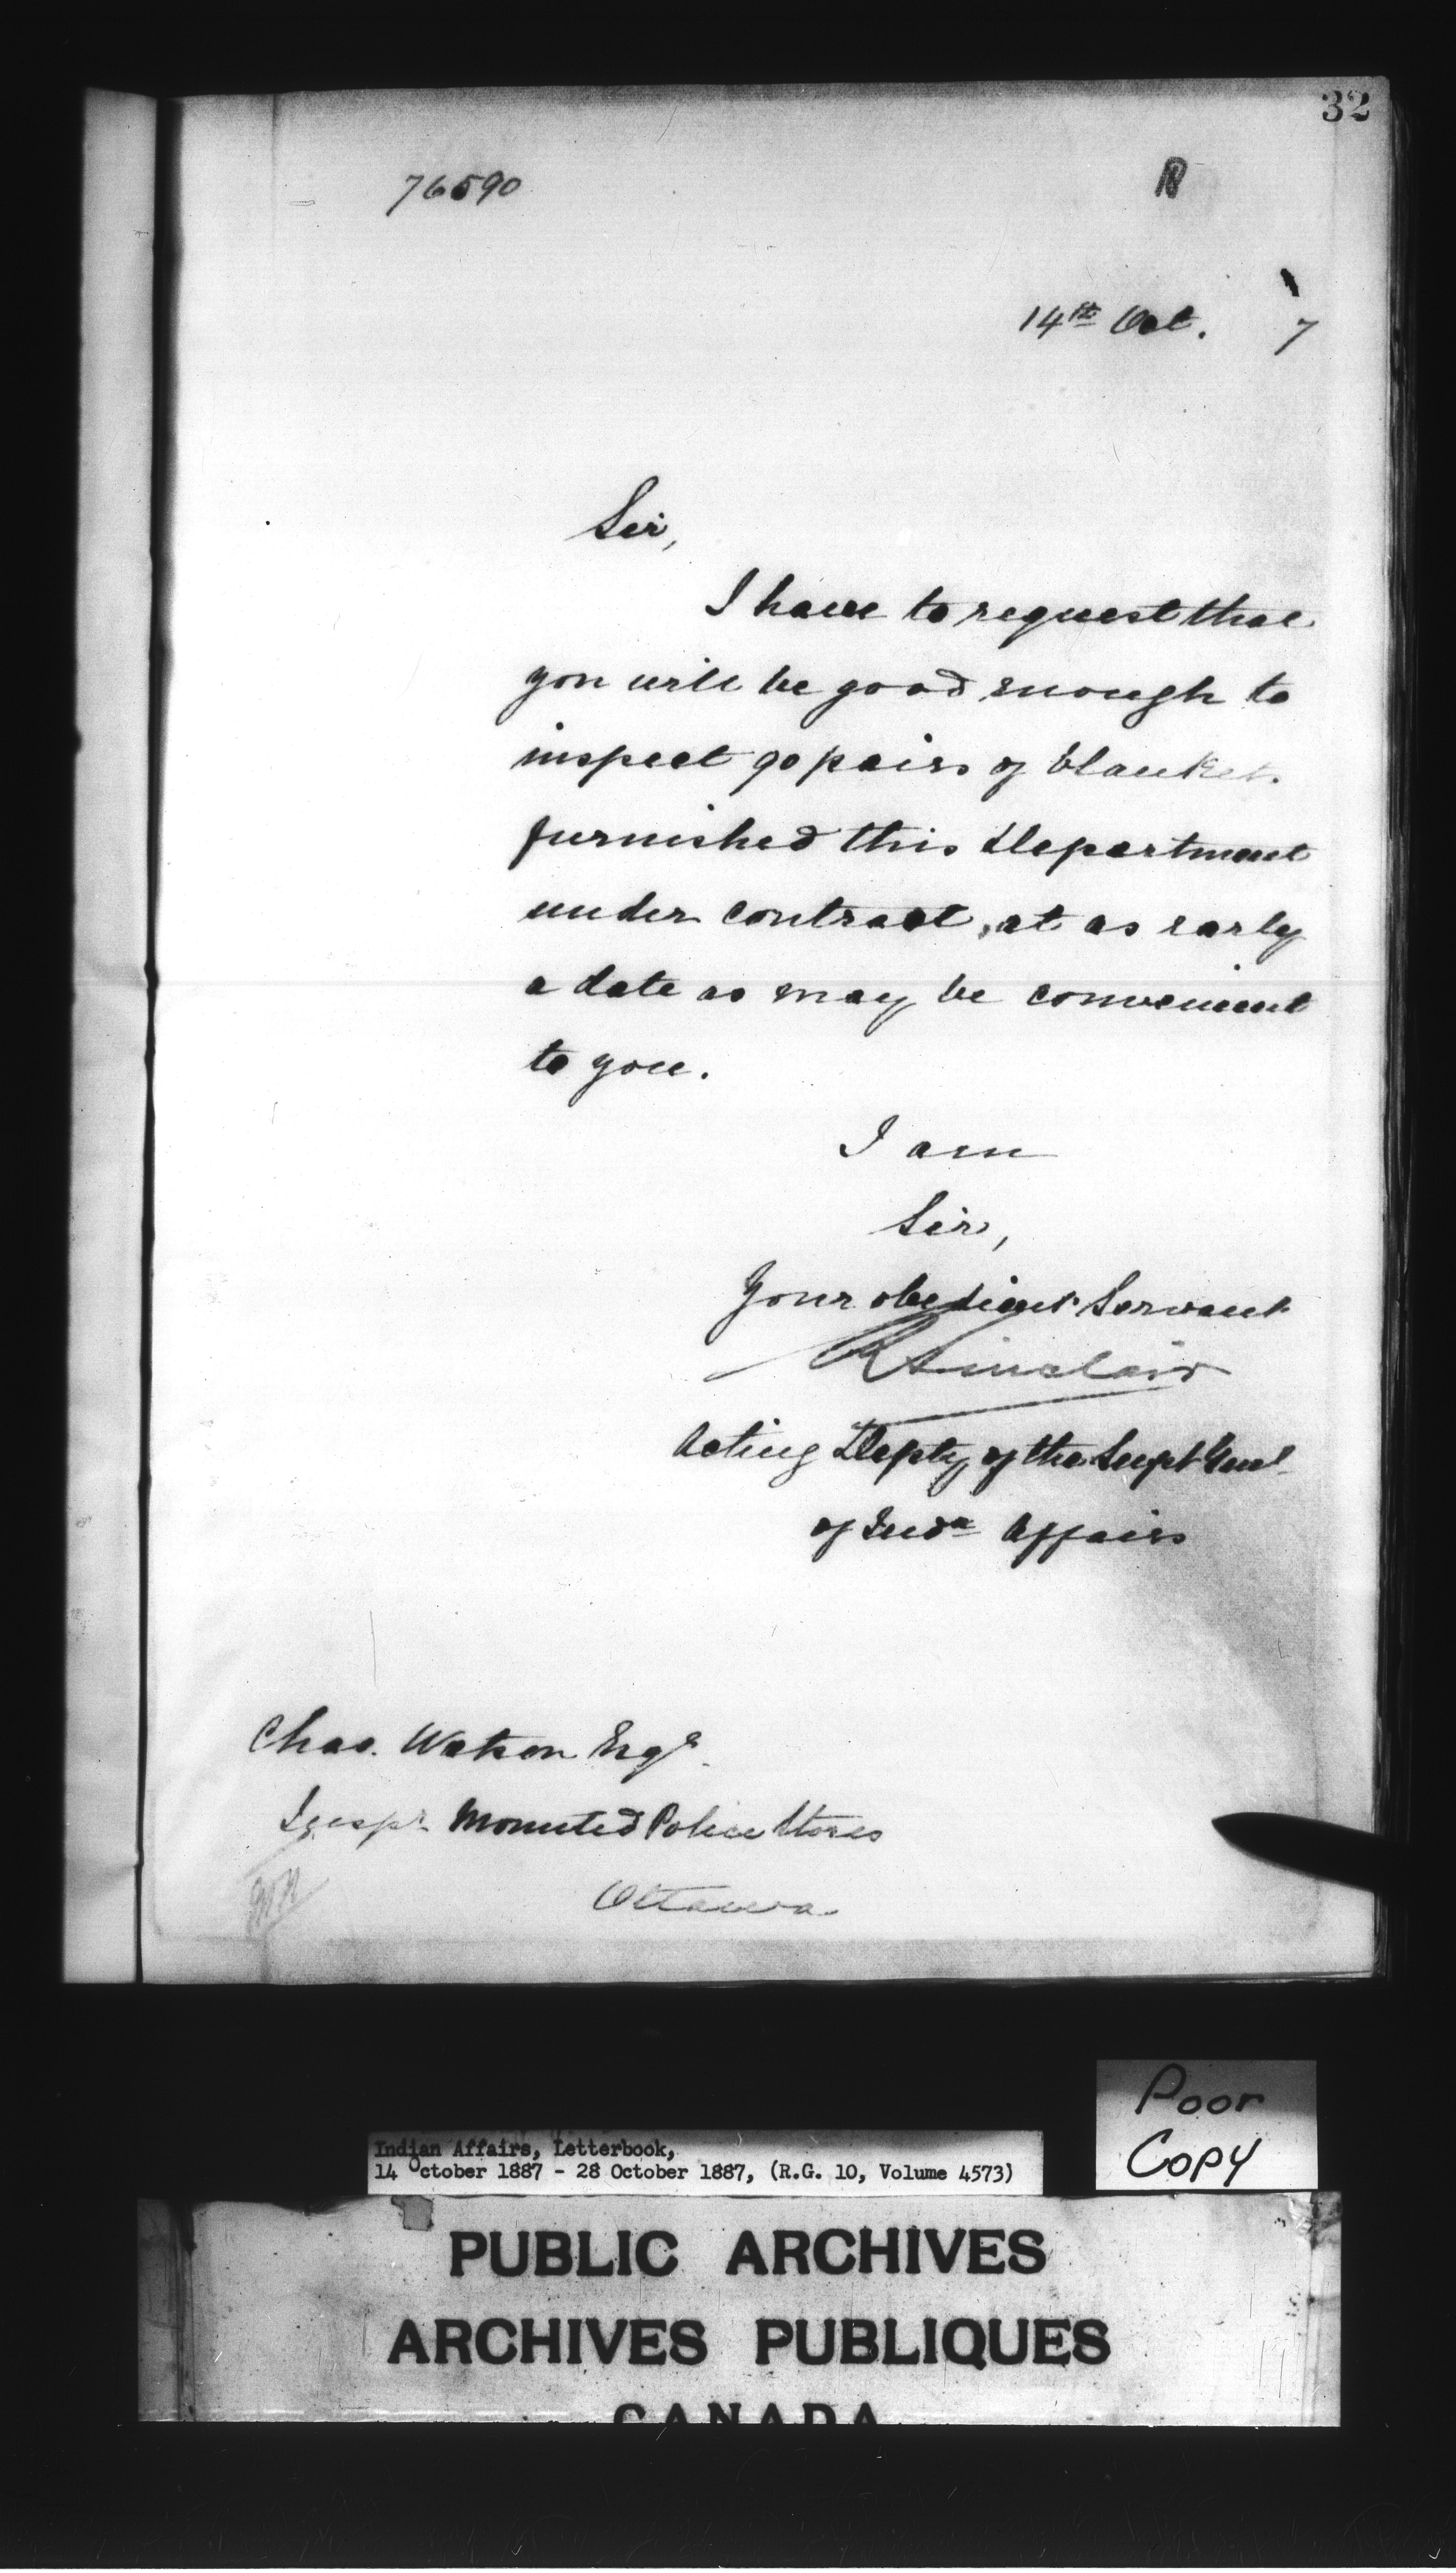 32
76590
R
14th Oct. 7
Sir,
I have to request that
you will be good enough to
inspect 90 pairs of blankets
furnished this Department
under contract, at as early
a date as may be convenient
to you.
I am
Sir,
Your obedient Servant
R Sinclair
Acting Depty of the Supt Genl
of Indn Affairs
Chas. Watson Esqr.
Inspr Mounted Police Stores
Ottawa
Poor
Copy
Indian Affairs, Letterbook,
14 October 1887 - 28 October 1887, (R.G. 10, Volume 4573)
PUBLIC ARCHIVES
ARCHIVES PUBLIQUES
CANADA